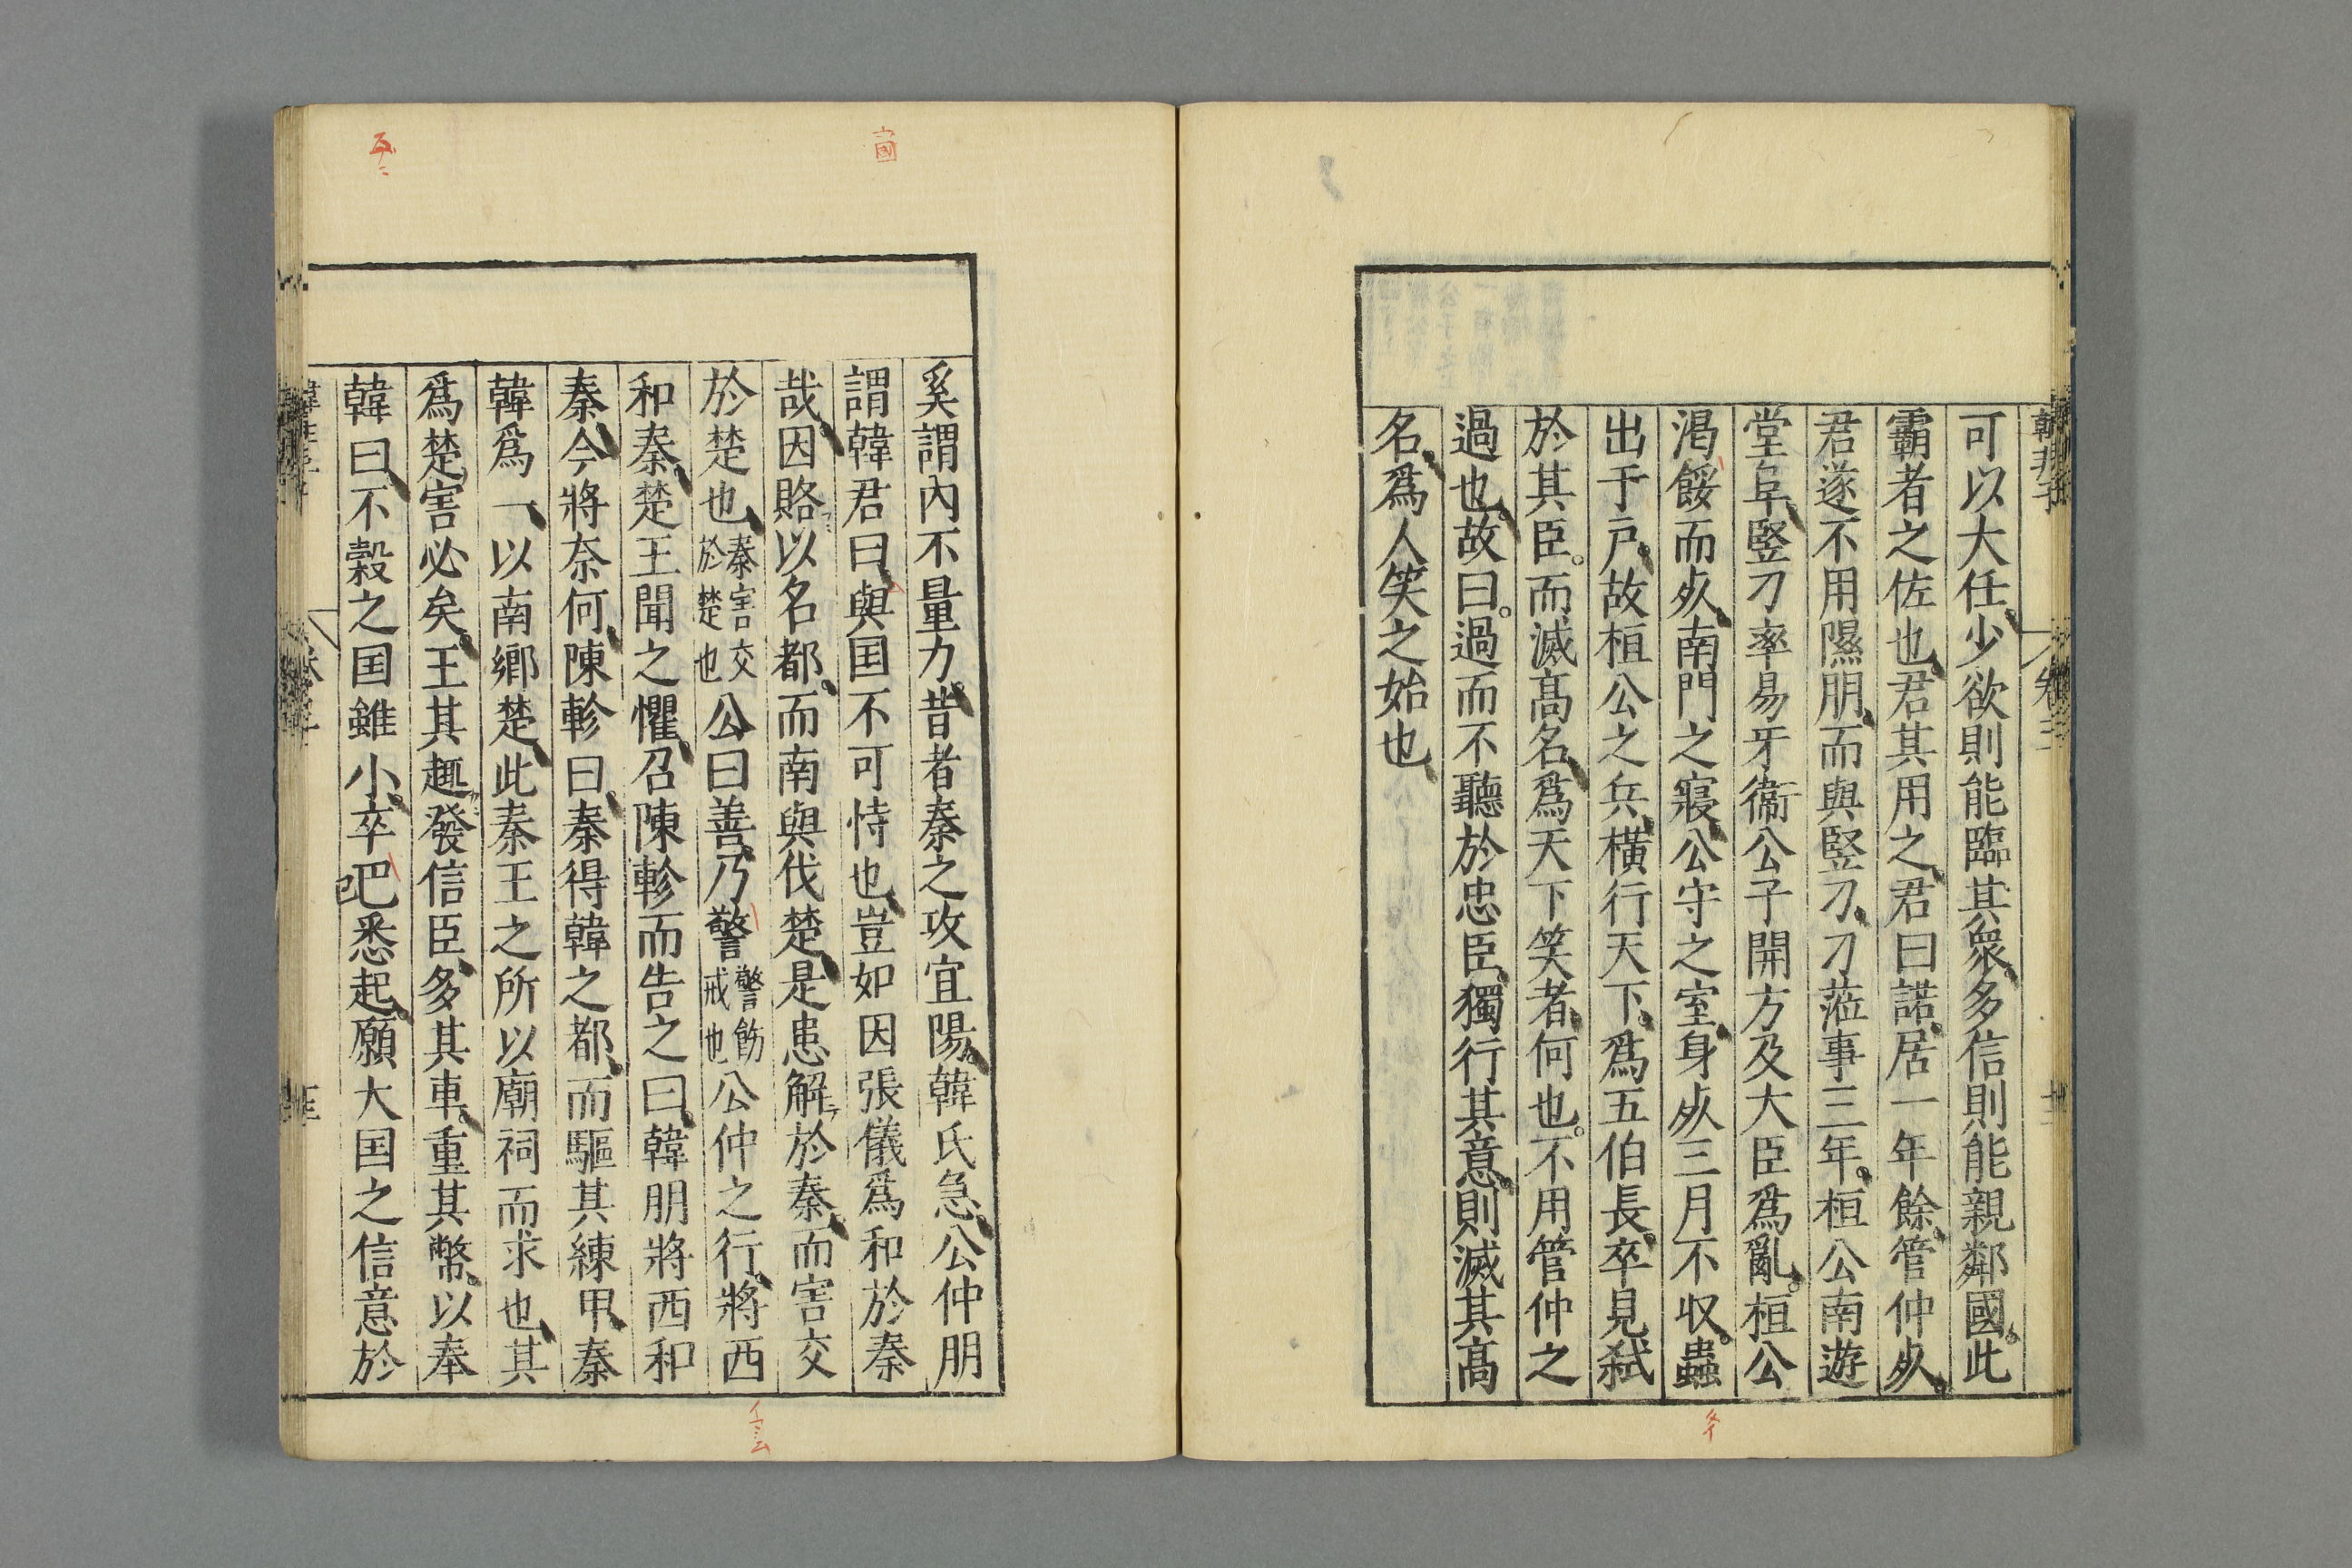 韓非子 卷三
可以大任、少欲則能臨其衆、多信則能親鄰國。此
霸者之佐也、君其用之、君曰諾、居一年餘、管仲㱙、
君遂不用隰朋、而與竪刁、刁蒞事三年、桓公南遊
堂阜、竪刁率易牙衞公子開方及大臣爲亂。桓公
渇餒而㱙、南門之寢、公守之室、身㱙三月不収。蟲
出于戸、故桓公之兵、橫行天下、爲五伯長、卒見弑
於其臣。而滅髙名、爲天下笑者、何也。不用管仲之
過也、故曰。過而不聽於忠臣、獨行其意、則滅其髙
名、爲人笑之始也、
奚謂內不量力、昔者秦之攻宜陽、韓氏急、公仲朋
謂韓君曰、與囯不可恃也、豈如因張儀爲和於秦
哉、因賂以名都、而南與伐楚、是患解於秦、而害交
於楚也、秦害交於楚也公曰善、乃警警飭戒也公仲之行、將西
和秦、楚王聞之懼、召陳軫而告之曰、韓朋將西和
秦、今將奈何、陳軫曰、秦得韓之都、而驅其練甲、秦
韓爲一、以南鄉楚、此秦王之所以廟祠而求也、其
爲楚害必矣、王其趣發信臣、多其車、重其幣、以奉
韓曰、不穀之囯雖小、卒㠯悉起、願大囯之信意於